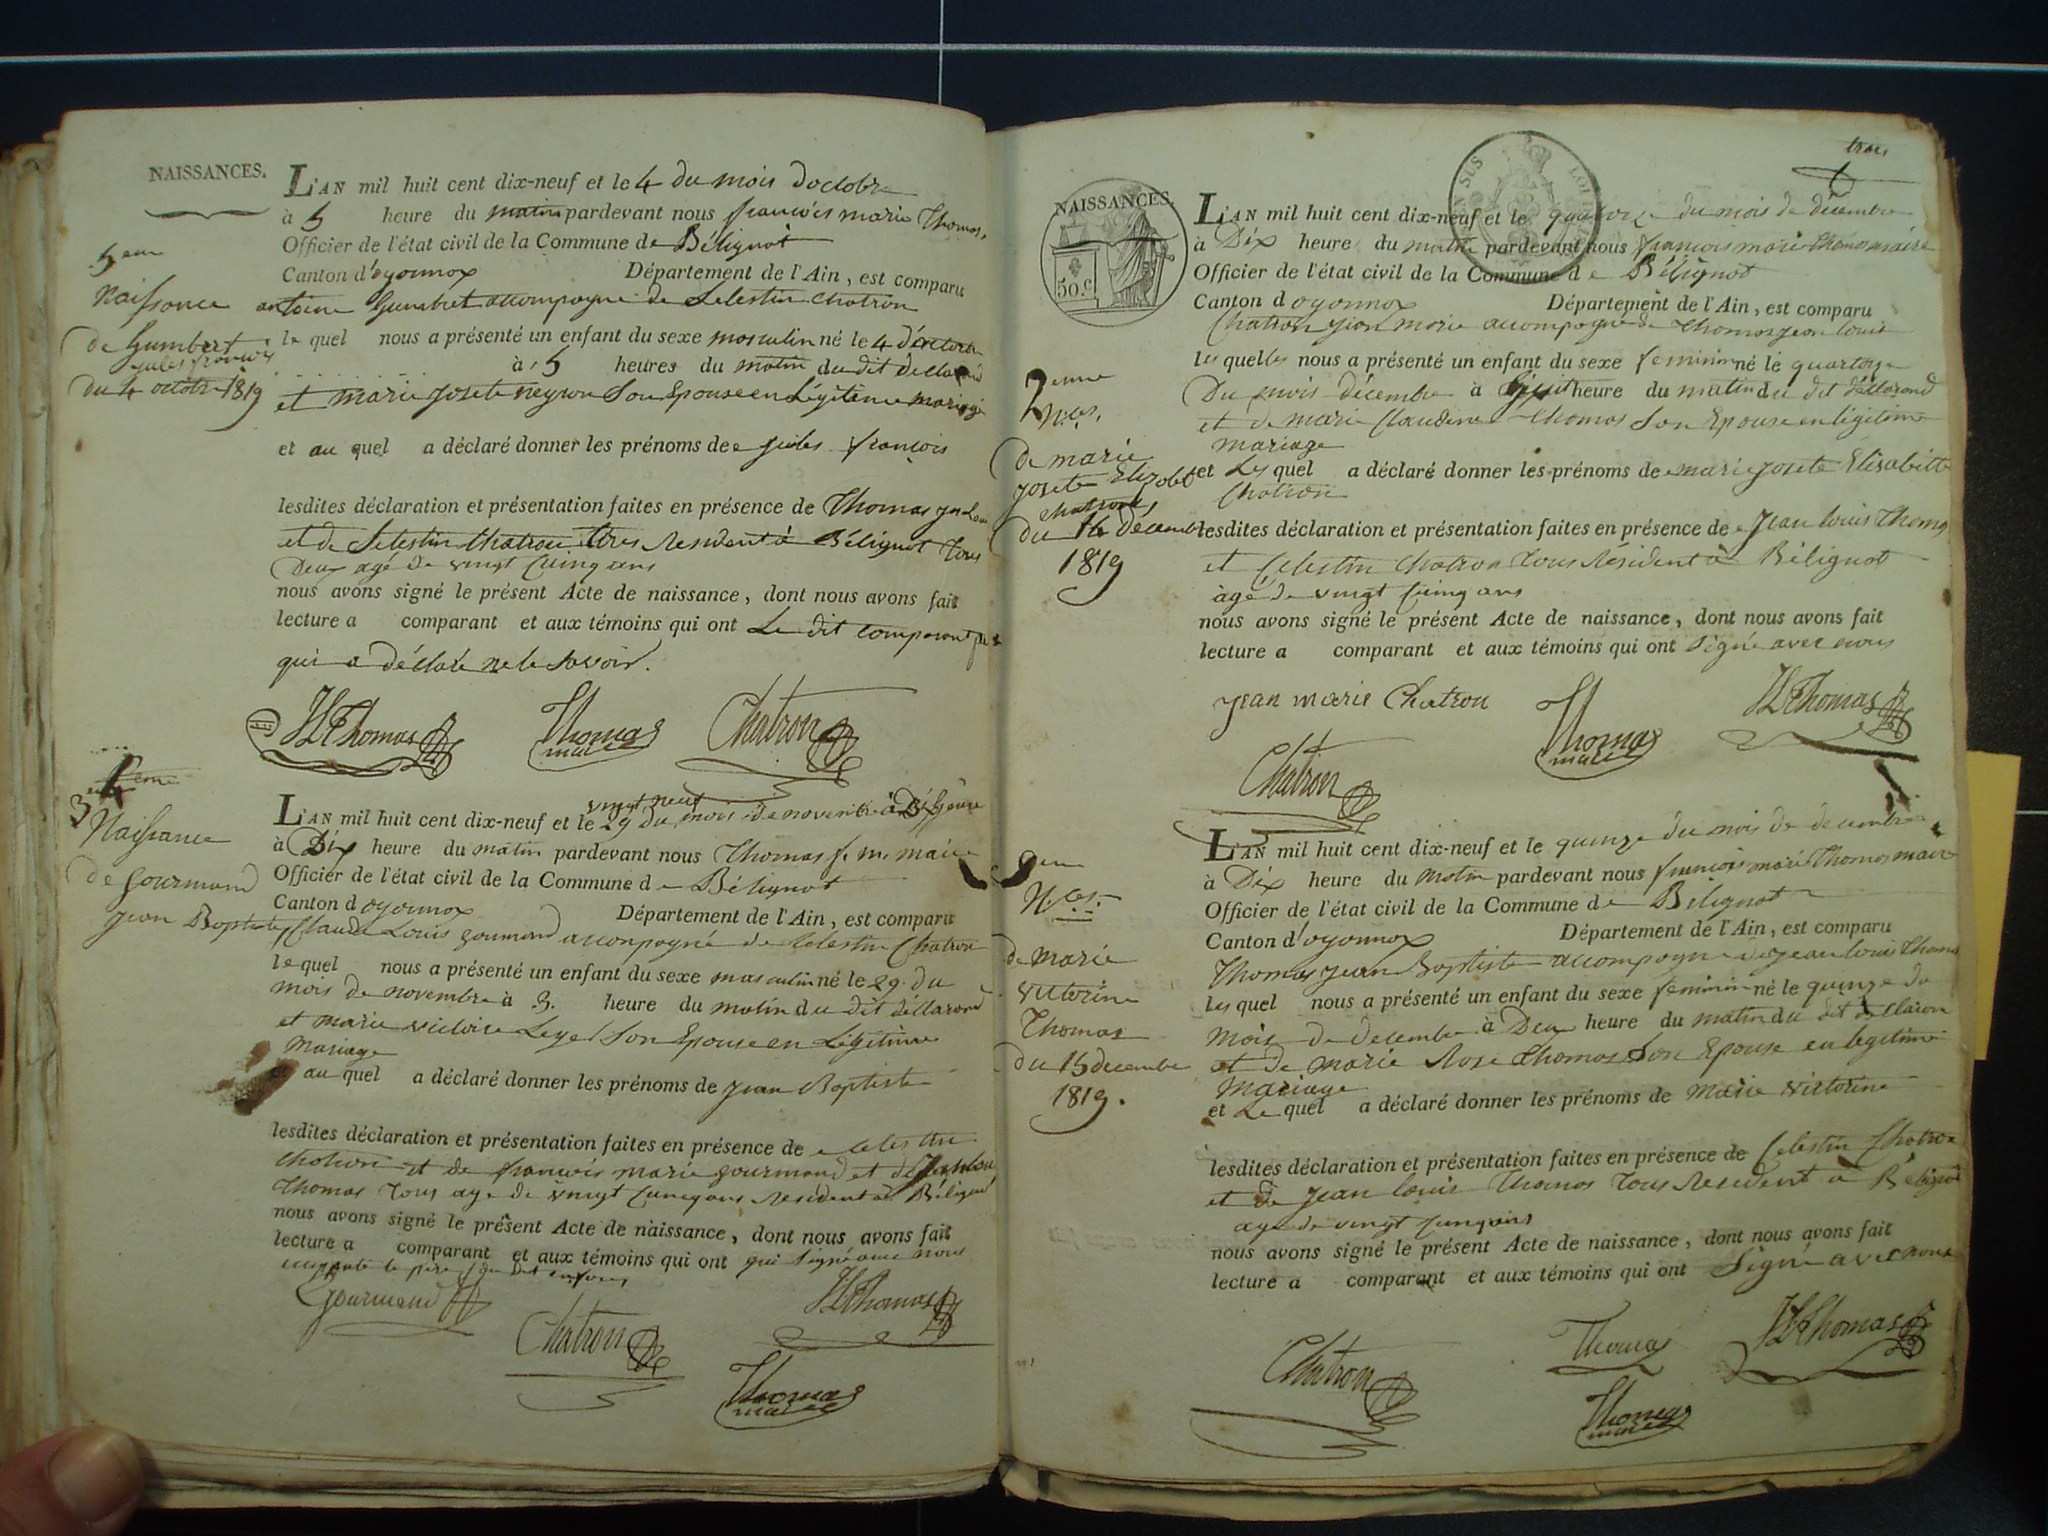 NAISSANCES.
5eme
Naissance
de Gumbert
jules francois
du 4 octobre 1819
L'AN mil huit cent dix-neuf et le 4 du mois doctobre
à 5 heure du matin pardevant nous francois marie Thomas
Officier de l'état civil de la Commune de Bélignat
Canton d'oyonnax Département de l'Ain, est comparu
antoine Gumbert accompagné de Selestin chatron
le quel nous a présenté un enfant du sexe masculin né le 4 d'octobre
à 5 heures du matin du dit declarand
et marie josete neyron Son Epouse en Légitime mariage
et au quel a déclaré donner les prénoms de jules francois
lesdites déclaration et présentation faites en présence de Thomas jn Loui
et de Selestin chatron tous Resident à Bélignat Tous
Deux agé de vingt Cuinq ans
nous avons signé le présent Acte de naissance, dont nous avons fait
lecture a comparant et aux témoins qui ont Le dit comparant
qui a déclaré ne le Savoir.
JLThomas Thomas maire Chatron
Naissance
de Gourmand
jean Baptiste
L'AN mil huit cent dix-neuf et le 29 du mois de novembre à Dix heure
vingt neuf
à Dix heure du matin pardevant nous Thomas f. m. maire
Officier de l'état civil de la Commune de Bélignat
Canton d oyonnax Département de l'Ain, est comparu
Claude Louis gourmand acconpagné de Celestin Chatron
le quel nous a présenté un enfant du sexe masculin né le 29 du
mois de novembre à 3. heure du matin du dit déllarand
et marie victoire Leger Son Epouse en Légitime
mariage
et au quel a déclaré donner les prénoms de jean Baptiste
lesdites déclaration et présentation faites en présence de celestin
chatron et de francois marie gourmand et de jean loui
Thomas Tous age de vingt Cuinq ans Resident à Bélignat
nous avons signé le présent Acte de naissance, dont nous avons fait
lecture a comparant et aux témoins qui ont qui signé avec nous
le père du dit enfans
Gourmand Chatron JLThomas
Thomas maire
trois
NAISSANCES.
50.c
7eme
N.ces.
de marie
josete Elizabet
chatron
du 14 décembre
1819
L'AN mil huit cent dix-neuf et le quatorze du mois de décembre
à Dix heure du matin pardevant nous francois marie Thomas maire
Officier de l'état civil de la Commune de Bélignat
Canton d oyonnax Département de l'Ain, est comparu
Chatron jean marie accompagné de thomas jean louis
les quelles nous a présenté un enfant du sexe feminin né le quatorze
Du mois décembre à huit heure du matin du dit déllarand
et de marie Claudine Thomas Son Epouse en légitime
mariage
et Les quel a déclaré donner les prénoms de marie josete Elisabette
Chatron
lesdites déclaration et présentation faites en présence de Jean louis Thomas
et Celestin chatron Tous Résident à Bélignat
agé de vingt Cuinq ans
nous avons signé le présent Acte de naissance, dont nous avons fait
lecture a comparant et aux témoins qui ont Signé avec nous
jean marie Chatron Thomas maire JLThomas
Chatron
8eme
N.ces.
de marie
victorine
Thomas
du 15 decembre
1819.
L'AN mil huit cent dix-neuf et le quinze du mois de decembre
à Dix heure du matin pardevant nous francois marie Thomas maire
Officier de l'état civil de la Commune de Bélignat
Canton d'oyonnax Département de l'Ain, est comparu
Thomas jean Baptiste accompagné de jean louis Thomas
Les quel nous a présenté un enfant du sexe feminin né le quinze du
mois de decembre à Deux heure du matin du dit dellarand
et de marie Rose Thomas Son Epouse en légitime
Mariage
et Le quel a déclaré donner les prénoms de marie victorine
lesdites déclaration et présentation faites en présence de Celestin Chatron
et de jean louis Thomas Tous Resident à Bélignat
age de vingt Cuinq ans
nous avons signé le présent Acte de naissance, dont nous avons fait
lecture a comparant et aux témoins qui ont Signé avec nous
Chatron Thomas JLThomas
Thomas maire